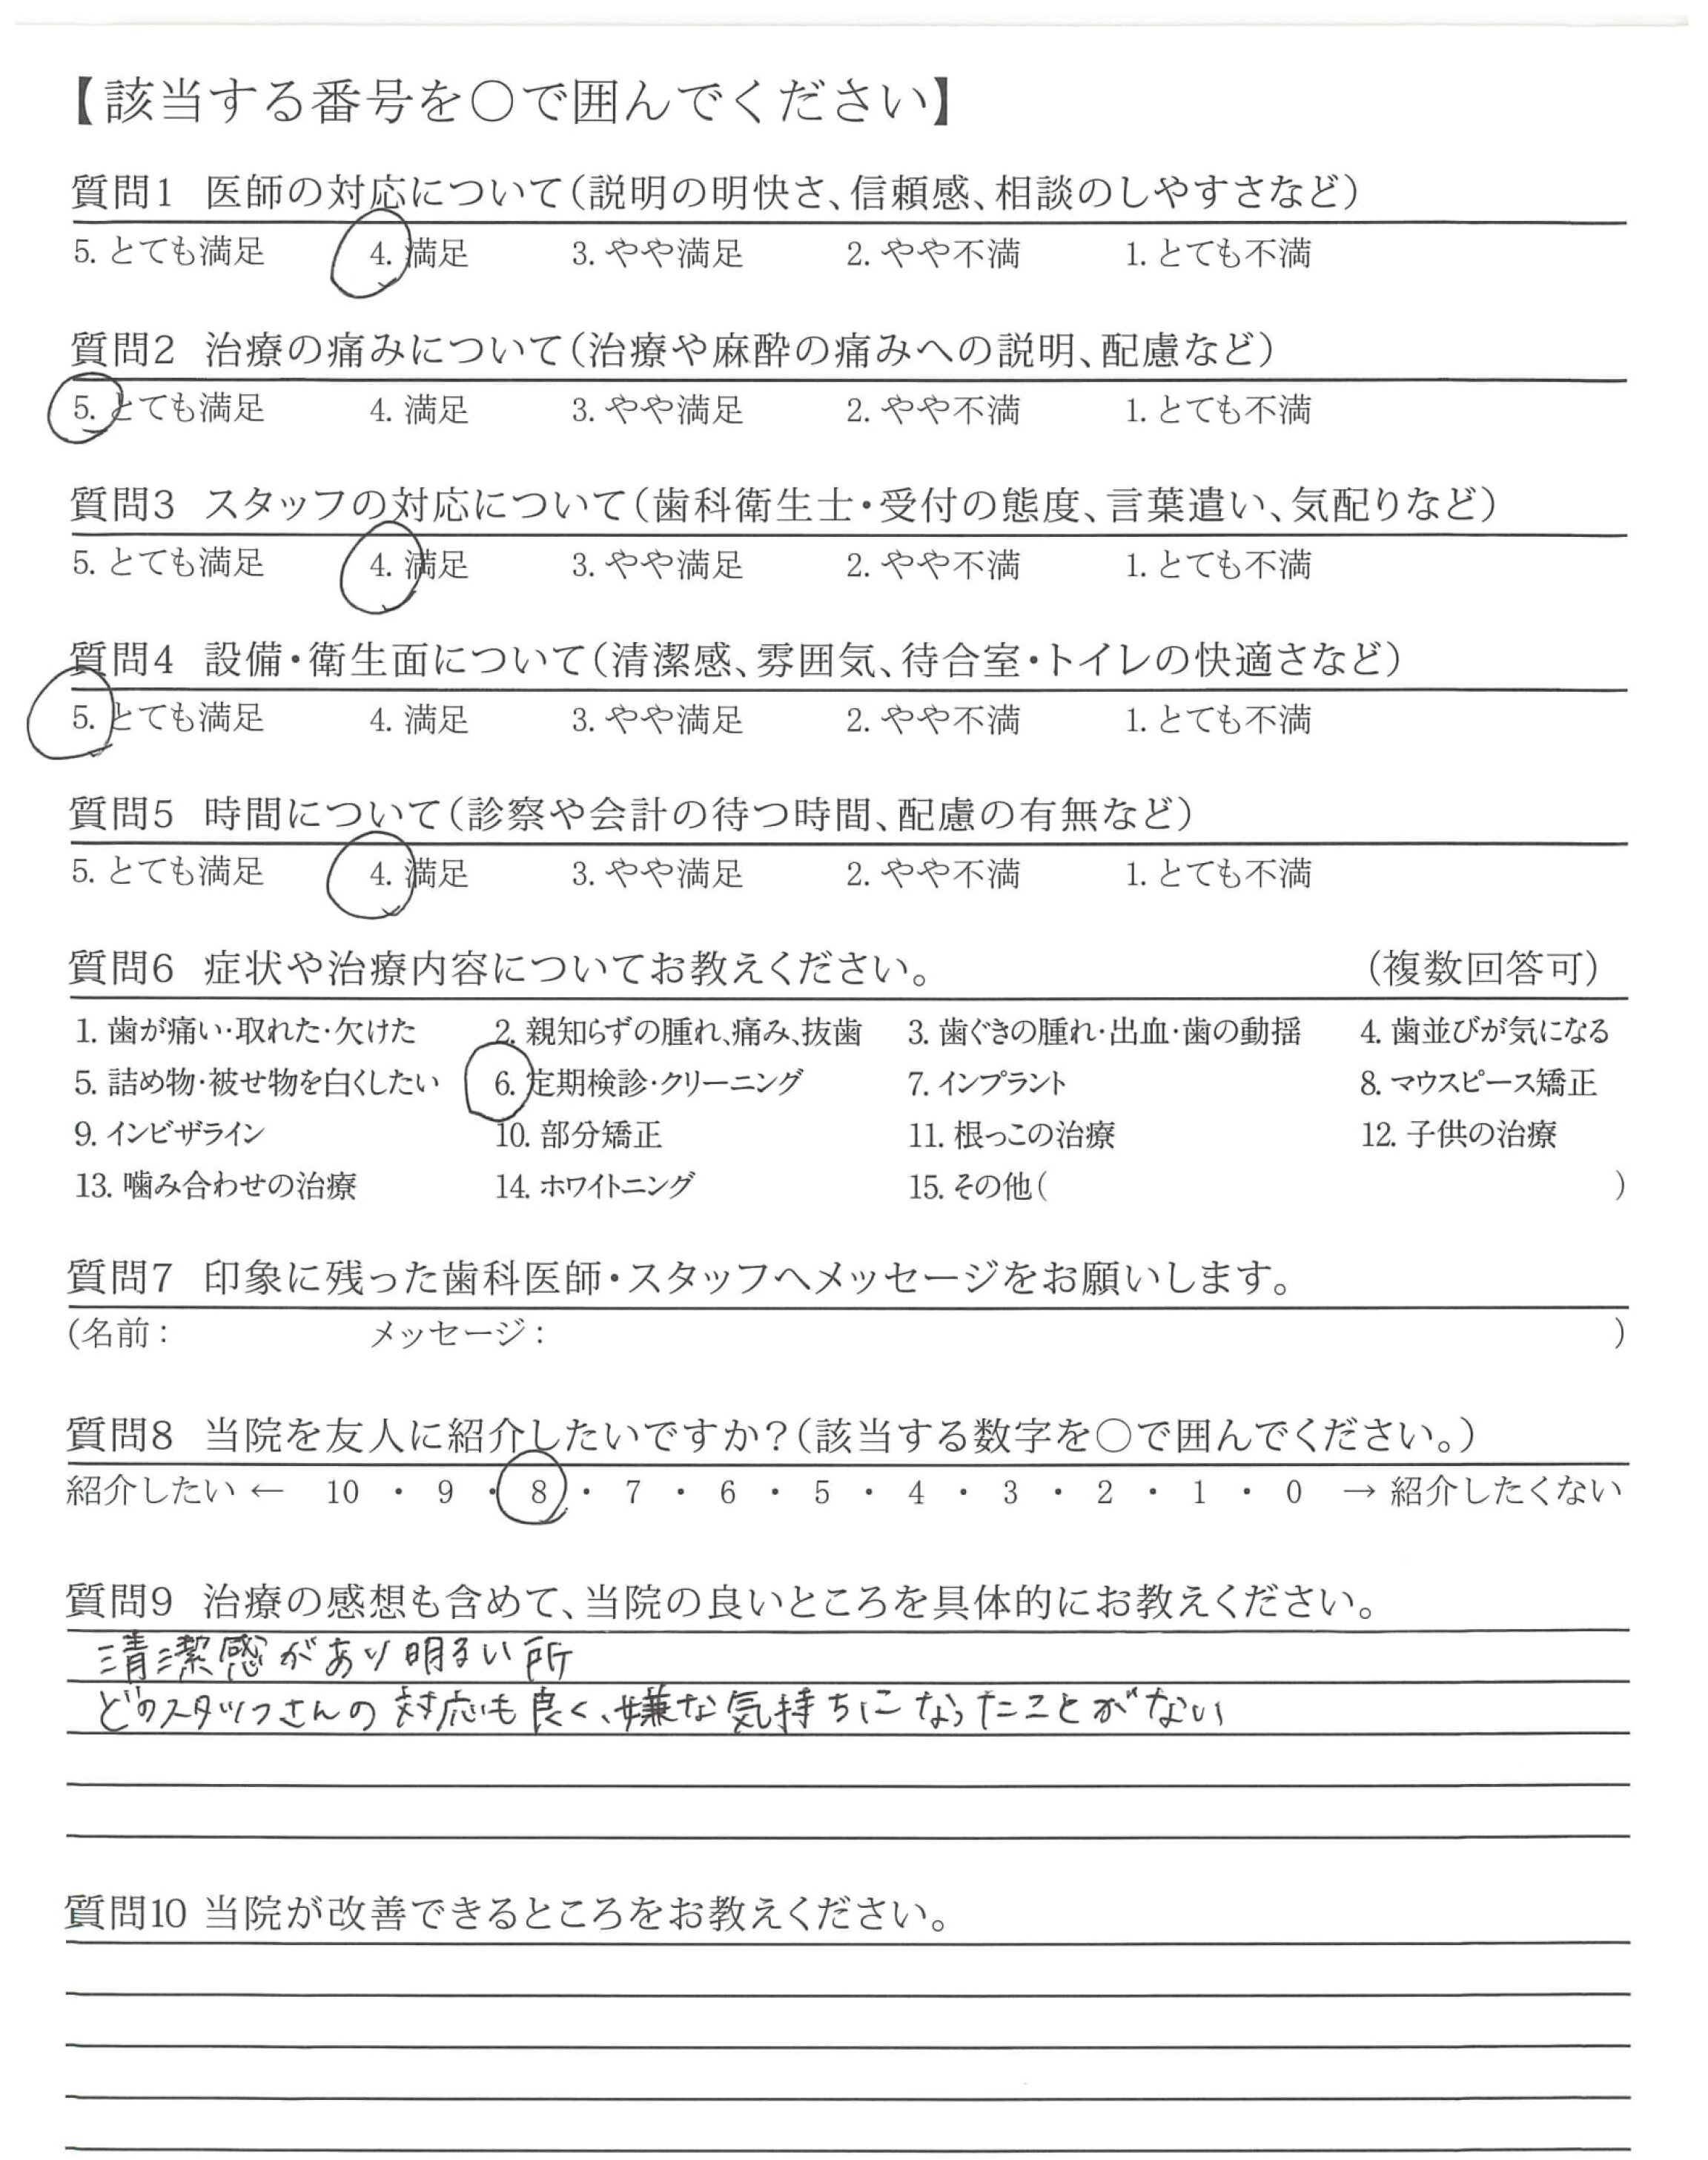 【該当する番号を○で囲んでください】
質問1 医師の対応について(説明の明快さ、信頼感、相談のしやすさなど)
5. とても満足 4. 満足 3. やや満足 2. やや不満 1. とても不満
質問2 治療の痛みについて(治療や麻酔の痛みへの説明、配慮など)
5. とても満足 4. 満足 3. やや満足 2. やや不満 1. とても不満
質問3 スタッフの対応について(歯科衛生士・受付の態度、言葉遣い、気配りなど)
5. とても満足 4. 満足 3. やや満足 2. やや不満 1. とても不満
質問4 設備・衛生面について(清潔感、雰囲気、待合室・トイレの快適さなど)
5. とても満足 4. 満足 3. やや満足 2. やや不満 1. とても不満
質問5 時間について(診察や会計の待つ時間、配慮の有無など)
5. とても満足 4. 満足 3. やや満足 2. やや不満 1. とても不満
質問6 症状や治療内容についてお教えください。 (複数回答可)
1. 歯が痛い・取れた・欠けた 2. 親知らずの腫れ、痛み、抜歯 3. 歯ぐきの腫れ・出血・歯の動揺 4. 歯並びが気になる
5. 詰め物・被せ物を白くしたい 6. 定期検診・クリーニング 7. インプラント 8. マウスピース矯正
9. インビザライン 10. 部分矯正 11. 根っこの治療 12. 子供の治療
13. 噛み合わせの治療 14. ホワイトニング 15. その他( )
質問7 印象に残った歯科医師・スタッフへメッセージをお願いします。
(名前: メッセージ: )
質問8 当院を友人に紹介したいですか?(該当する数字を○で囲んでください。)
紹介したい ← 10 ・ 9 ・ 8 ・ 7 ・ 6 ・ 5 ・ 4 ・ 3 ・ 2 ・ 1 ・ 0 → 紹介したくない
質問9 治療の感想も含めて、当院の良いところを具体的にお教えください。
清潔感があり明るい所
どのスタッフさんの対応も良く、嫌な気持ちになったことがない
質問10 当院が改善できるところをお教えください。